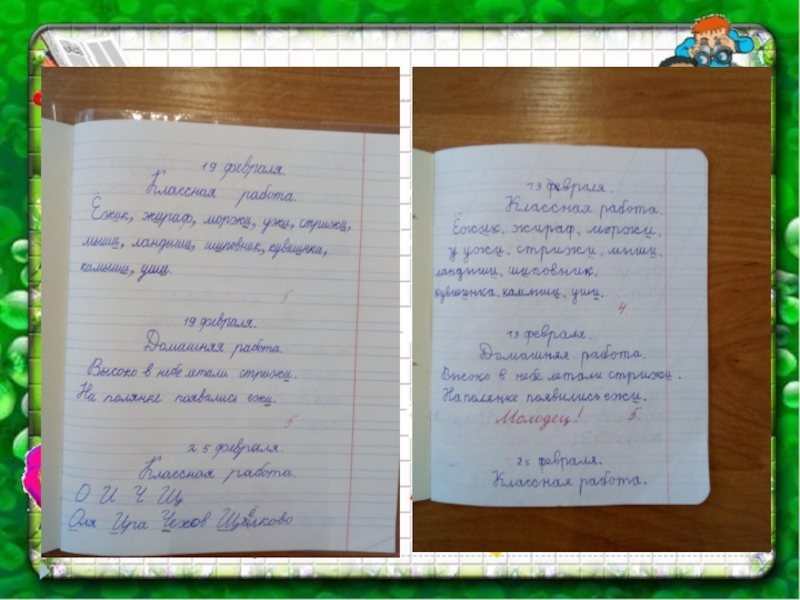 19 февраля.
Классная работа.
Ёжик, жираф, моржи, ужи, стрижи,
мыши, ландыши, шиповник, кувшинка,
камыши, уши.
5
19 февраля.
Домашняя работа.
Высоко в небе летали стрижи.
На полянке появились ежи.
5
25 февраля.
Классная работа.
О И Ч Щ
Оля Ира Чехов Щёлково
19 февраля.
Классная работа.
Ёжик, жираф, моржи,
у ужи, стрижи, мыши,
ландыши, шиповник,
кувшинка, камыши, уши.
4
19 февраля.
Домашняя работа.
Высоко в небе летали стрижи.
На полянке появились ежи.
Молодец! 5
25 февраля.
Классная работа.